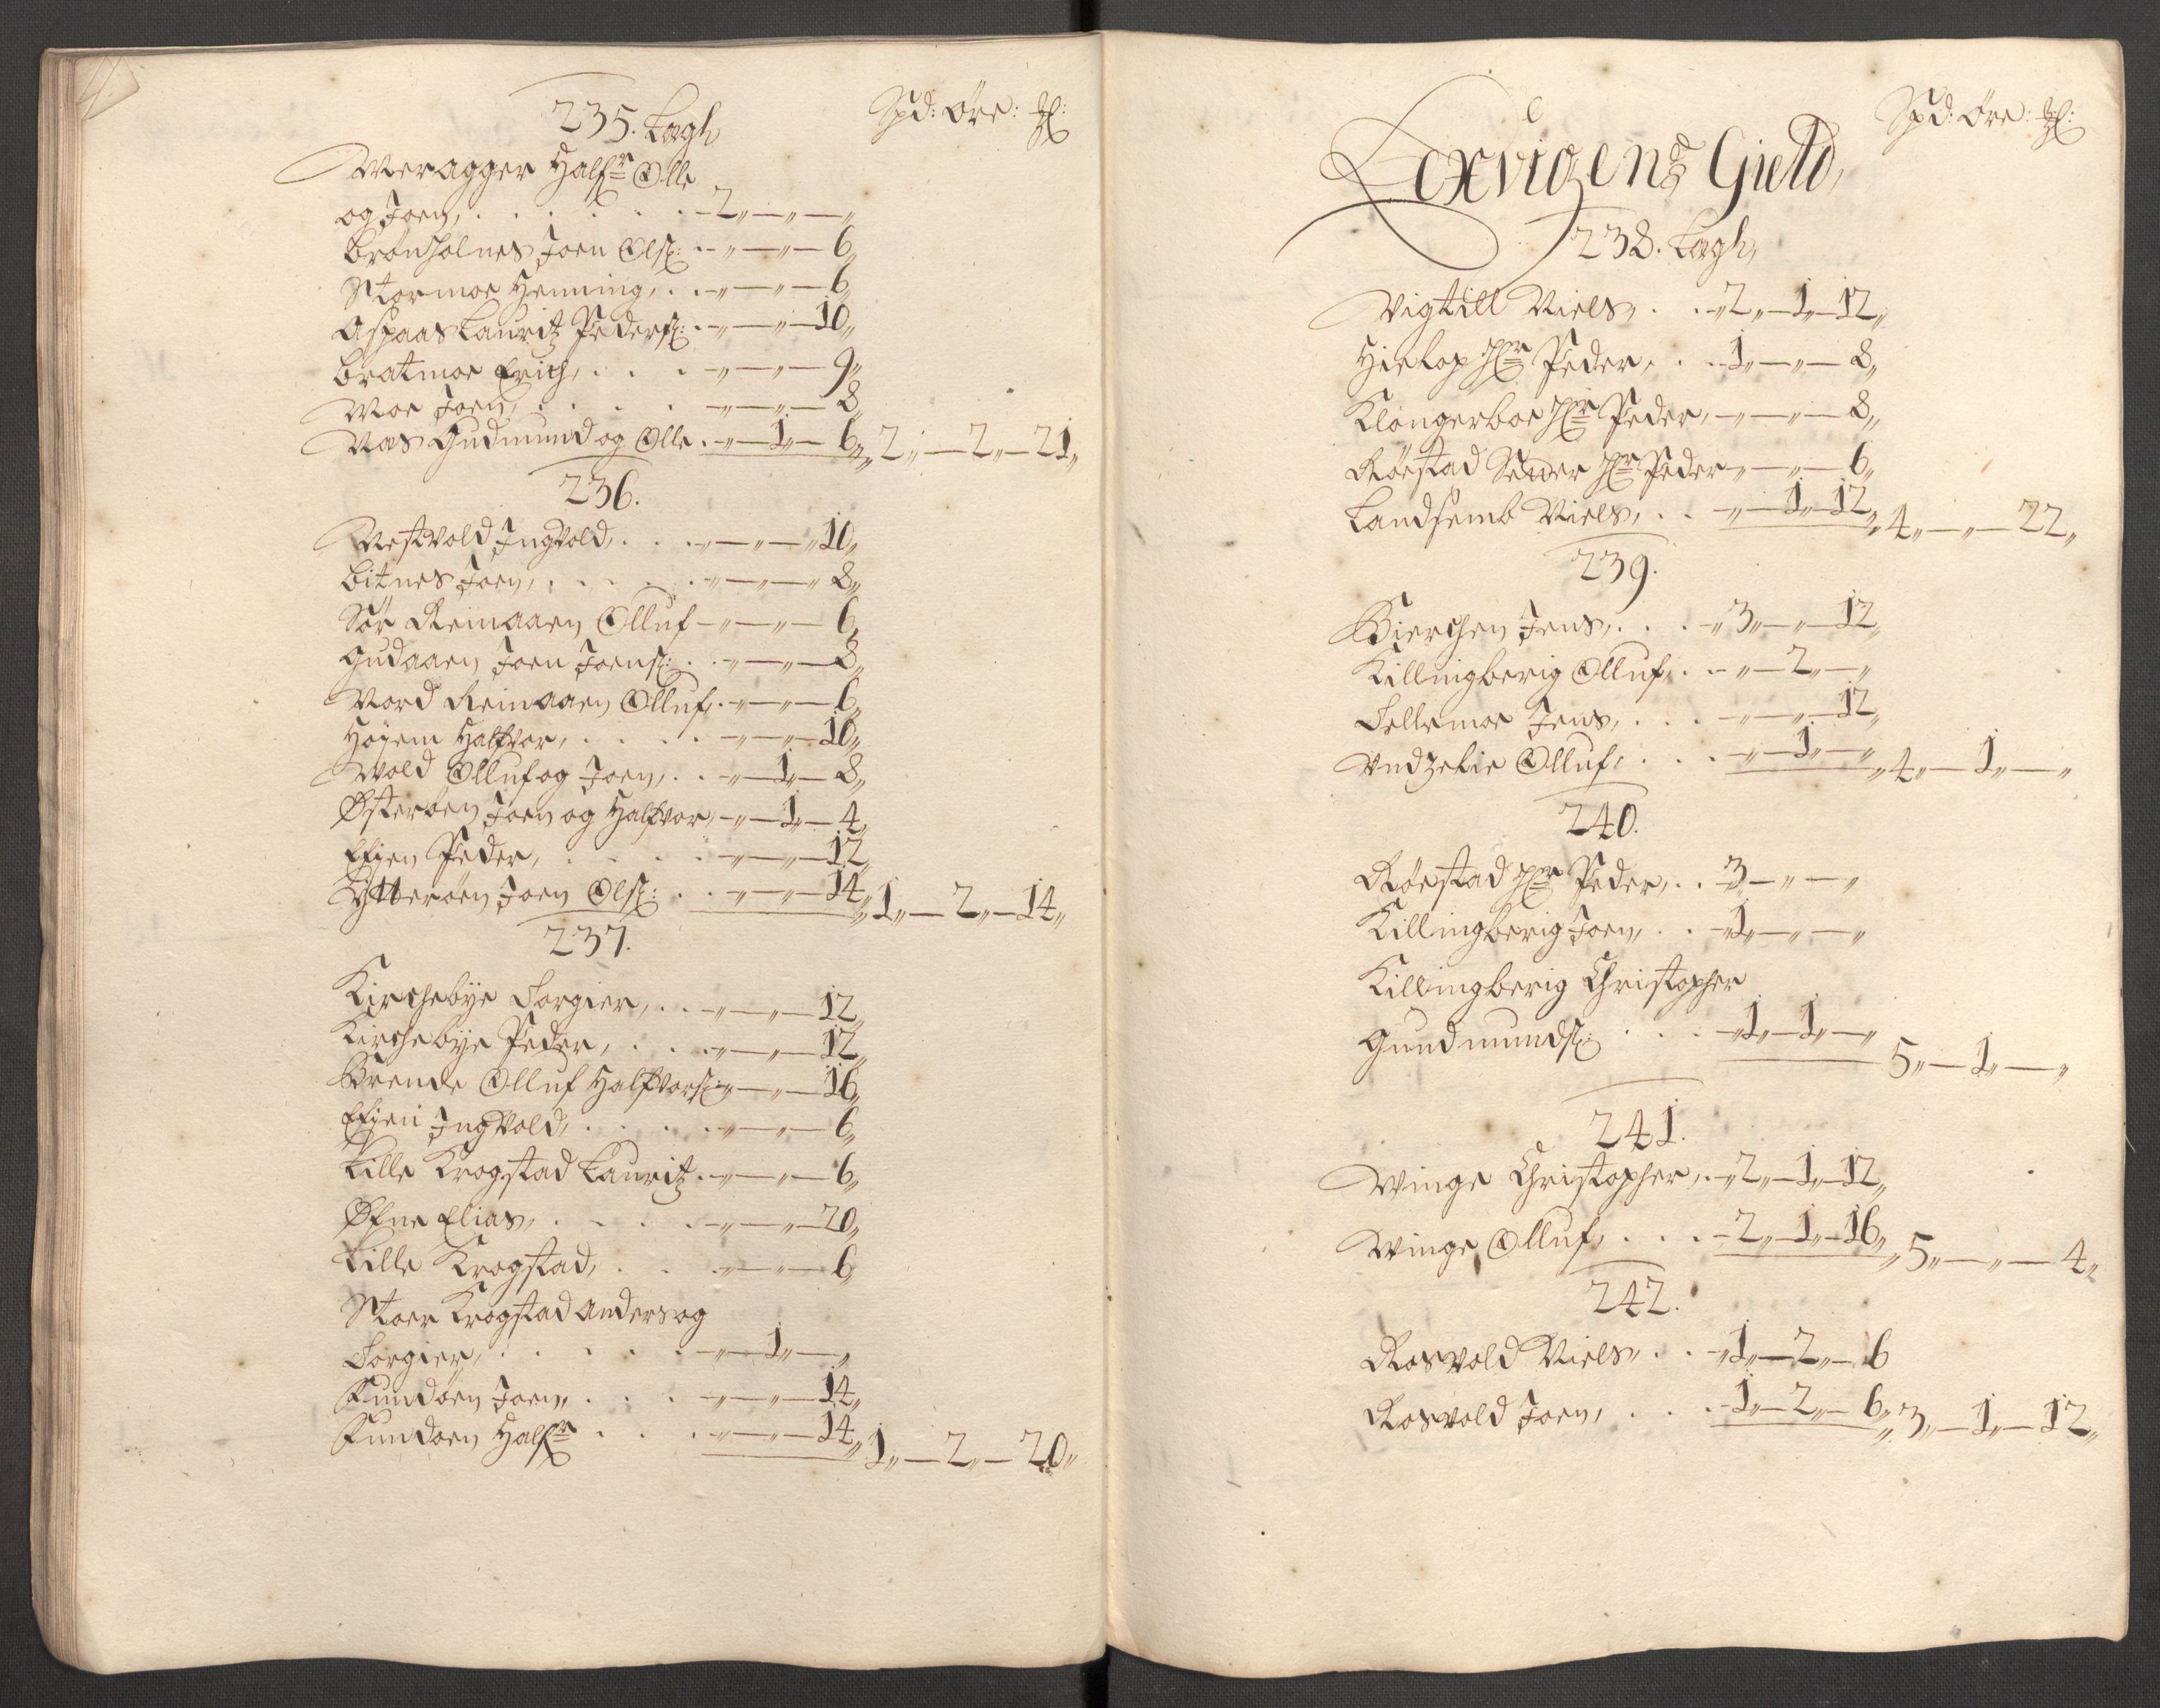 235. Lagh
Spd: Öre: ßl:
Meragger Halfr Olle
og Joen, . . . . . . 2„—„—„
Brönsholnes Joen Ols: . -„—„— 6„
Stormoe Henning, . . -„—„— 6„
Aspaas Lauritz Peders: . -„—„— 10„
Bratmoe Erich, . . . -„—„— 9„
Moe Joen, . . . . -„—„— 8„
Nas Gudmund og Olle . -„— 1„— 6„ 2„— 2„— 21„
236.
Nestvold Ingvold, . . . -„—„— 10„
Bitnes Joen, . . . . -„—„— 8„
Sör Reinaaen Olluf -„—„— 6„
Gudaaen Joen Joens: . -„—„— 8„
Nord Reinaaen Olluf, . -„—„— 6„
Höyem Halfvor, . . . . -„—„— 10„
Wold Olluf og Joen, . . -„— 1„— 8„
Österöen Joen og Halfvor, -„— 1„— 4„
Efien Peder, . . . . -„—„— 12„
Ytteröen Joen Ols: . . -„—„— 14„ 1„— 2„— 14„
237.
Kirchebye Torgier, . . -„—„— 12„
Kirchebye Peder, . . . -„—„— 12„
Brende Olluf Halfvors: -„—„— 16„
Efien Ingvold, . . . . -„—„— 6„
Lille Krogstad Lauritz . -„—„— 6„
Öfne Elias, . . . . -„—„— 20„
Lille Krogstad, . . . -„—„— 6„
Stoer Krogstad Anders og
Torgier, . . . . . -„— 1„—„
Fundöen Joen, . . . -„—„— 14„
Fundöen Halfr . . . -„—„— 14„ 1„— 2„— 20„
Spd: Öre: ßl:
Lexvigens Gield,
238. Lagh,
Vigtill Niels, . . -„ 2„— 1„— 12„
Hielop Hr Peder, . . -1„—„— 8„
Klongerboe Hr Peder, -„—„— 8„
Röestad Sender Hr Peder -„—„— 6„
Landsemb Niels, . . -„— 1„— 12„ 4„—„— 22„
239.
Bierchen Jens, . . . -„ 3„—„— 12„
Killingberig Olluf, . . -„— 2„—„
Tellemoe Jens, . . . -„—„— 12„
Undzelie Olluf, . . . -„— 1„—„ 4„— 1„—„
240.
Röestad Hr Peder, . . 3„—„—„
Killingberig Joen, . . -1„—„—„
Killingberig Christopher
Gundmunds: . . . -1„— 1„—„ 5„— 1„—„
241.
Winge Christopher, . -„ 2„— 1„— 12„
Winge Olluf, . . . - 2„— 1„— 16„ 5„—„— 4„
242.
Rosvold Niels, . . -„ 1„— 2„— 6
Rosvold Joen, . . . - 1„— 2„— 6„ 3„— 1„— 12„